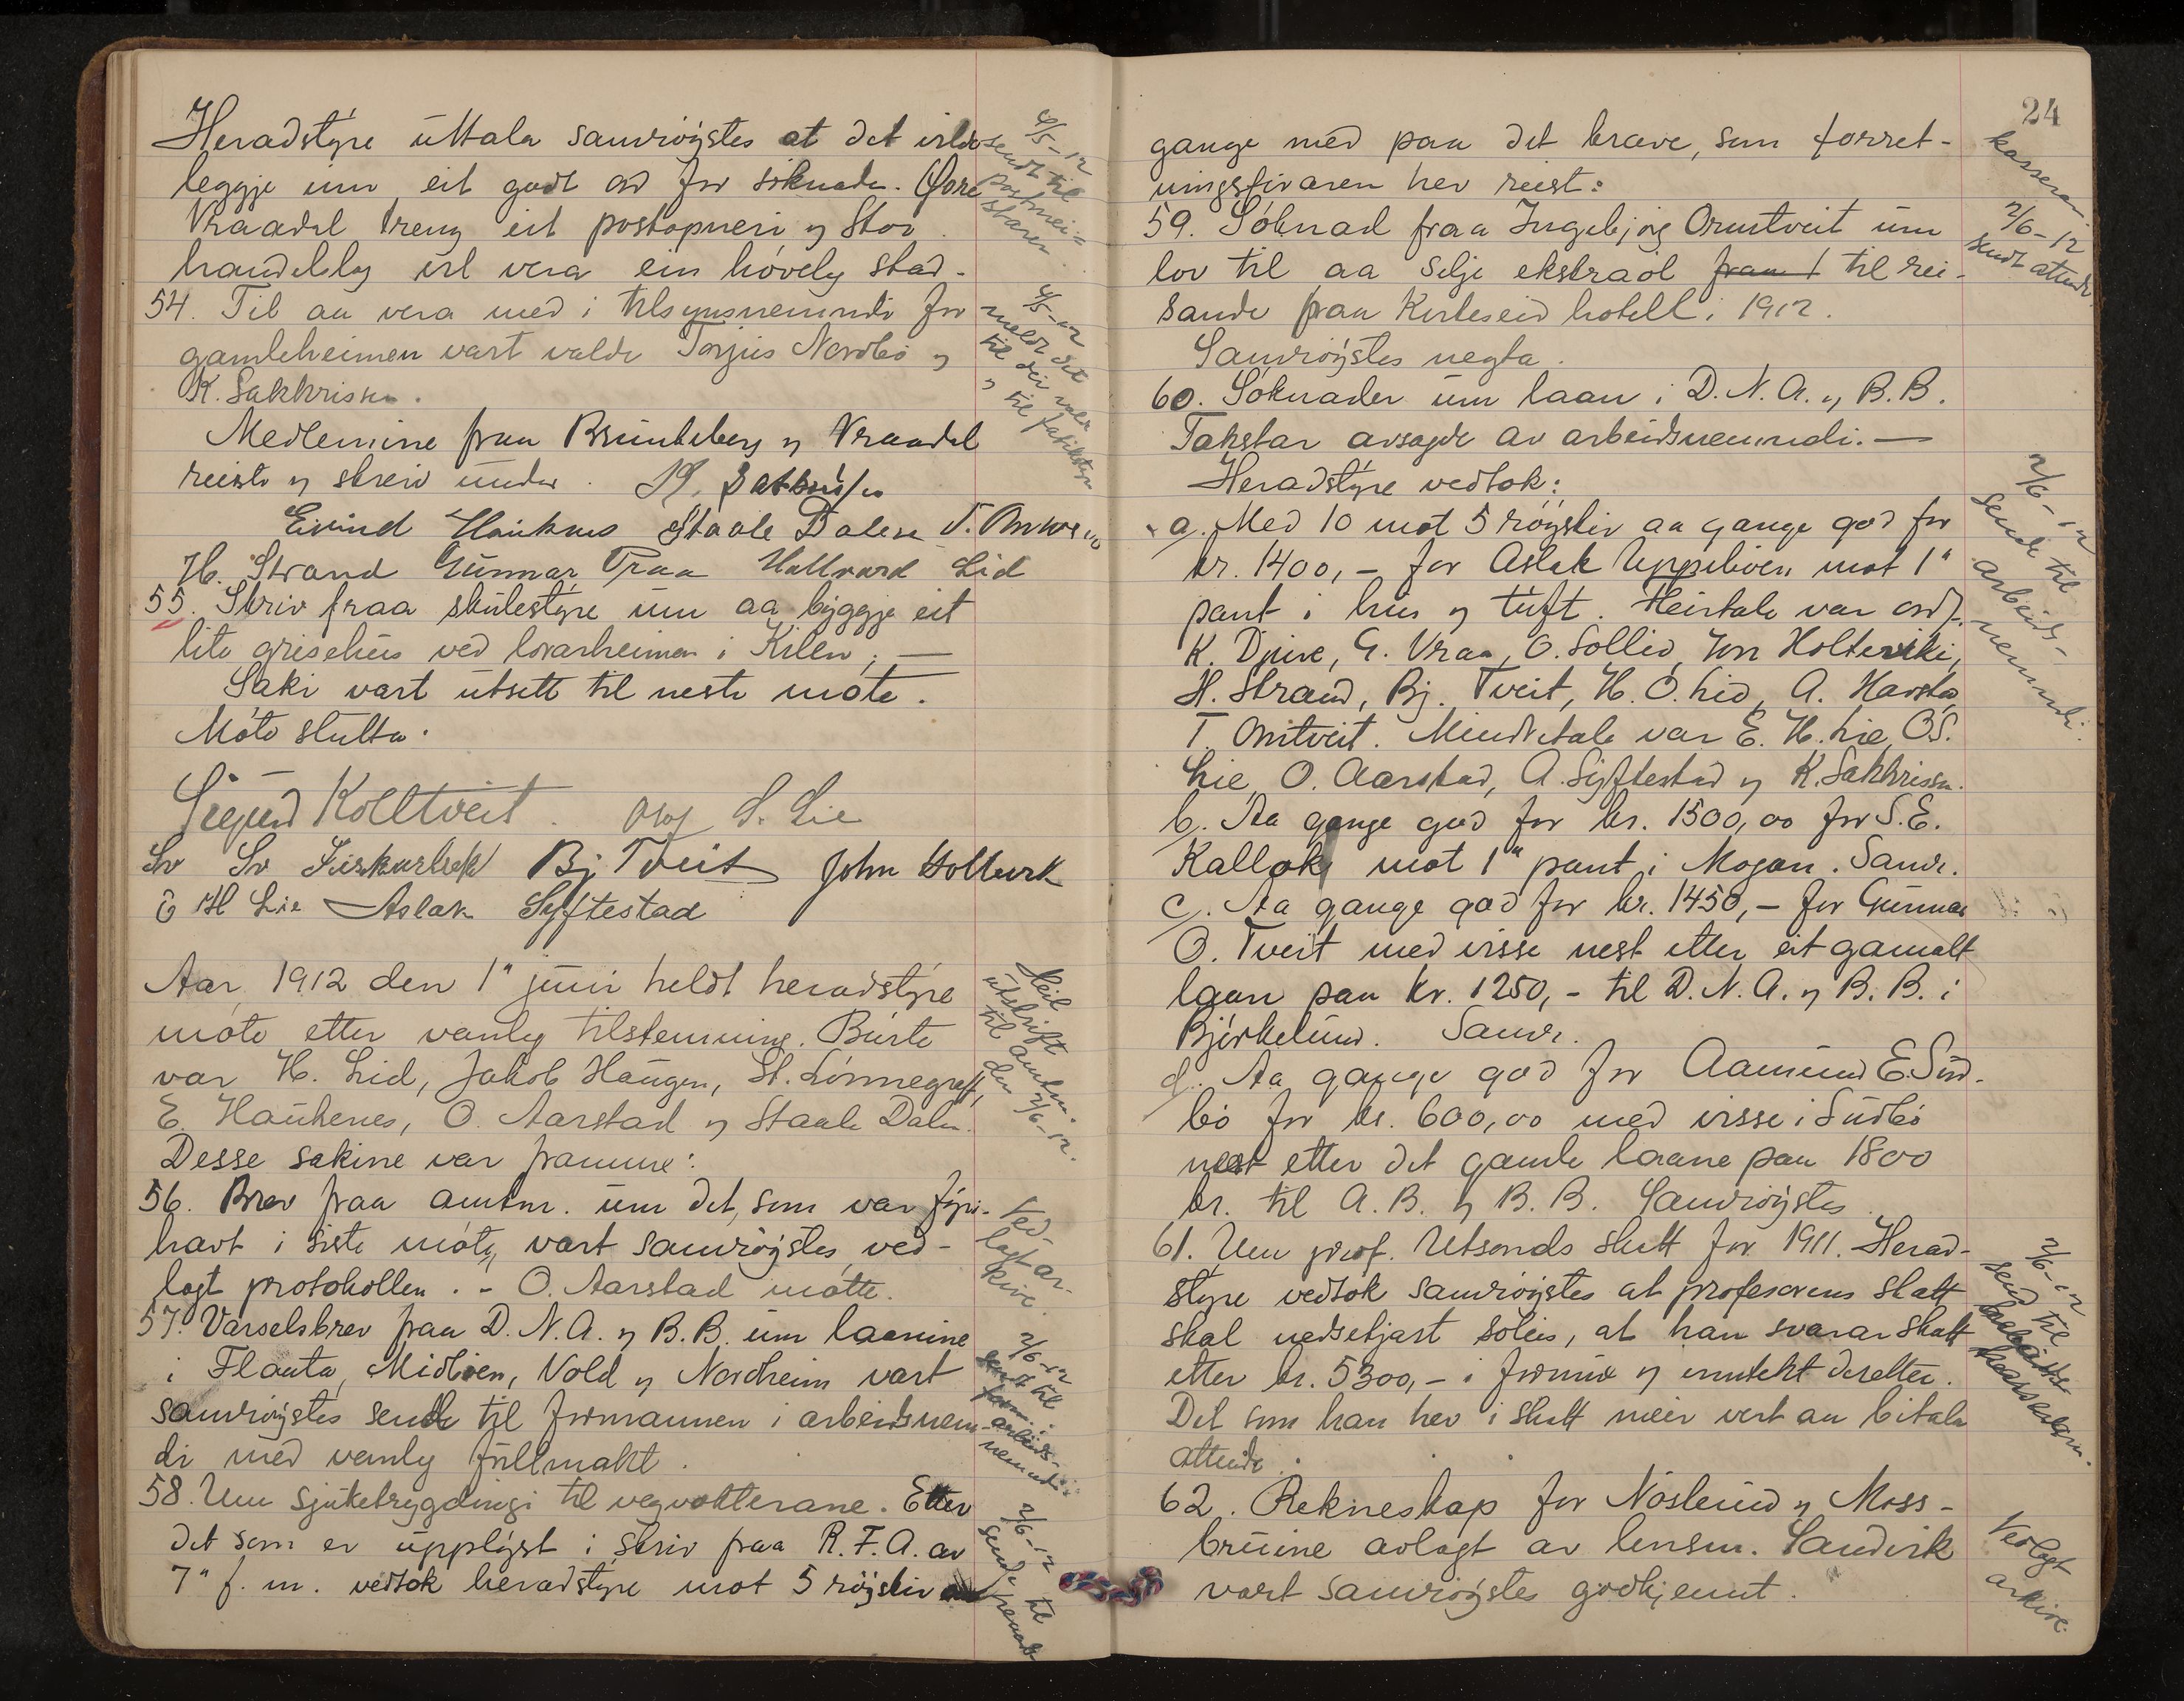 Heradstyre uttala samrøystes at det vilde
leggje inn eit godt ord for søknadn. Øvre
Vraadal treng eit postopneri og Stor
handelslag vil vera ein høveleg stad.
54. Til aa vera med i tilsynsnemndi for
gamleheimen vart valde Torjus Nordbø og
K. Sakkrissn.
Medlemine fraa Brunkeberg og Vraadal
reiste og skreiv under. K. Sakkrissn
Eivind Haukenes Staale Dalen T. Omtveit
H. Strand Gunnar Vraa Hallvard Lid
55. Skriv fraa skulestyre um aa byggje eit
lite grisehus ved lærarheimen i Kilen; —
Saki vart utsett til neste møte.
Møte slutta.
Sigurd Kolltveit. Olav S. Lie
Sv Sv Bj Tveit John Holtevik
E H Lie Aslak Syftestad
Aar 1912 den 1" juni heldt heradstyre
møte etter vanleg tilstemning. Burte
var H. Lid, Jakob Haugen, St. Lønnegraff,
E. Haukenes, O. Aarstad og Staale Dalen.
Desse sakine var framme:
56. Brev fraa amtm. um det, som var fyri-
havt i siste møte, vart samrøystes ved-
lagt protokollen. - O. Aarstad møtte.
57. Varselsbrev fraa D. N. A. og B. B. um laanine
i Flauta, Midbøen, Vold og Nordheim vart
samrøystes sende til formannen i arbeidsnemn-
di med vanleg fullmakt.
58. Um sjuketrygdingi til vegvaktarane. Etter
det som er upplyst i skriv fraa R. F. A. av
7" f. m. vedtok heradstyre mot 5 røyster
4/5-12
sendt til
postmei-
staren.
4/5-12
meldt det
til dei valde
og til fatikstyre
Heil
utskrift
til amtm.
den 2/6-12.
Ved-
lagt ar-
kive.
2/6-12
sendt til
form. i
arbeids-
nemndi.
2/6-12
sendt til
24
gange med paa det kravet, som forret-
ningsføraren hev reist:
59. Søknad fraa Ingebjørg Omtveit um
lov til aa selje ekstraøl til rei-
sande fraa Kviteseid hotell i 1912.
Samrøystes negta.
60. Søknader um laan i D. N. A. og B. B.
Takstar avsagde av arbeidsnemndi. —
Heradstyre vedtok:
a. Med 10 mot 5 røyster aa gange god for
kr. 1400,- for Aslak Uppebøen mot 1"
pant i hus og tuft. Fleirtale var ordf.
K. Djuve, G. Vraa, O. Sollid, Jon Holteviki,
H. Strand, Bj. Tveit, H. O. Lid, A. Havstad,
T. Omtveit. Mindretale var E. H. Lie, O.S.
Lie, O. Aarstad, A. Syftestad og K. Sakkrissn.
b. Aa gange god for kr. 1500,00 for S. E.
Kallak mot 1" pant i Mogan. Samr.
c. Aa gange god for kr. 1450,- for Gunnar
O. Tveit med visse nest etter eit gamalt
laan paa kr. 1250,- til D. N. A. og B. B. i
Bjørkelund. Samr.
d. Aa gange god for Aamund E. Sud-
bø for kr. 600,00 med visse i Sudbø
nest etter det gamle laane paa 1800
kr. til A. B. og B. B. Samrøystes.
61. Um prof. Utsonds skatt for 1911. Herad-
styre vedtok samrøystes at profesorens skatt
skal nedsetjast soleis, at han svarar skatt
etter kr. 5300,- i formue og inntekt deretter.
Det som han hev i skatt meir vert aa bitala
attende.
62. Rekneskap for Nøslund og Moss-
bruine avlagt av lensm. Sandvik
vart samrøystes godkjennt.
kasseraren.
2/6-12
sendt attende
2/6-12
sende til
arbeids-
nemndi.
2/6-12
send til
Vedlagt
arkive.